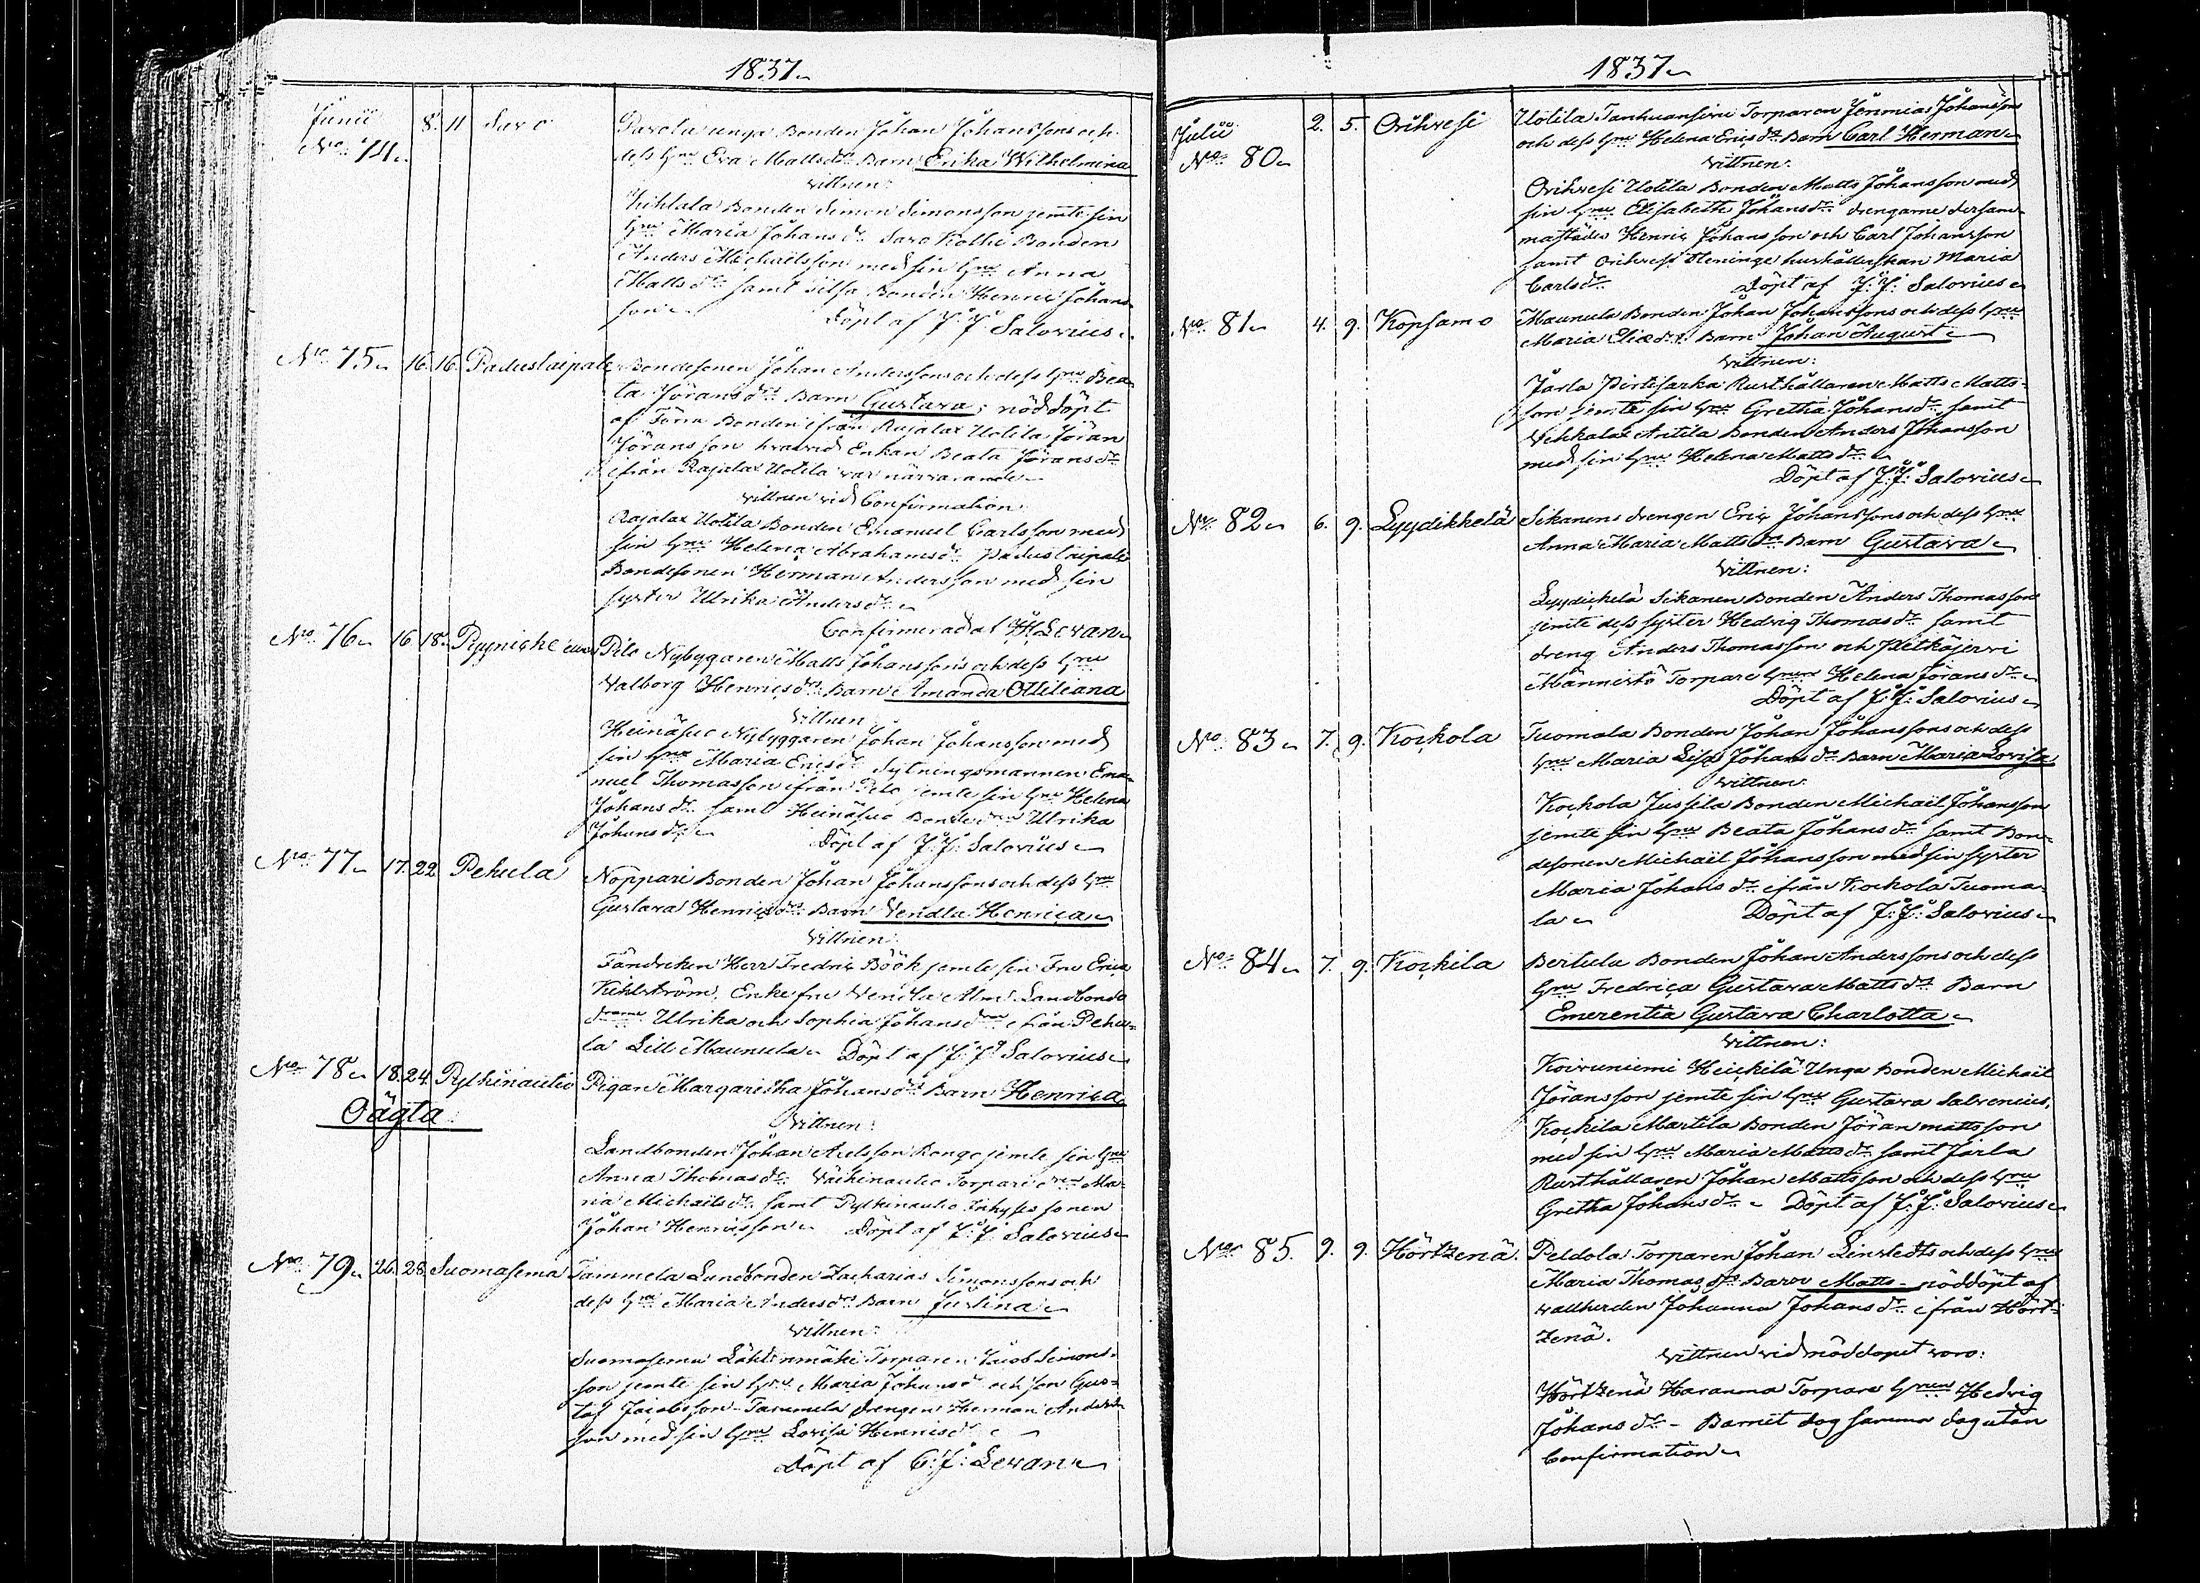 1837
Junii 8. 11 Savo Pavola unga Bonden Johan Johanssons och
No 74 dess hru Eva Matts dr Barn Erika Wilhelmina
vittnen:
Bonden Simon Simonsson jemte sin
hru Maria Johans dr Savo Kolhi Bonden
Anders Michaelsson med sin hru Anna
Matts dr samt Bonden Henric Johans
son Döpt af J: J: Salovius
No 75 16 16 Paduslaipale Bondesonen Johan Anderssons och dess hru Bea
ta Jörans dr Barn Gustava; nöddöpt
af Förra Bonden ifrån Rajalax Uotila Jöran
Jöransson hvarvid Enkan Beata Jörans dr
ifrån Rajalax Uotila var närvarande
vittnen vid Confirmation:
Rajalax Uotila Bonden Emanuel Carlsson med
sin hru Helena Abrahams dr Paduslaipale
Bondesonen Herman Andersson med sin
syster Ulrika Anders dr
Confirmerad af Levan
No 76 16 18 Pilo Nybygaren Matts Johanssons och dess hru
Valborg Henrics dr Barn Amanda Ottiliana
Vittnen
Heinäsuo Nybyggaren Johan Johansson med
sin hru Maria Erics dr Sytningsmannen Ema
nuel Thomasson ifrån Pilo jemte sin hru Helena
Johans dr samt Heinäsuo Bonde dr Ulrika
Johans dr Döpt af J: J: Salovius
No 77 17. 22. Pehula Noppari Bonden Johan Johanssons och dess hru
Gustava Henrics dr Barn Vendla Henrica
Vittnen:
Fändriken Herr Fredric Böök jemte sin Fru Erica
Kihlström, Enke fru Vendla Alm Landbonde
Ulrika och Sophia Johans ifrån Pehu=
la Lill Maunula Döpt af J: J: Salovius
No 78 18. 24. Pylkinautio Pigan Margaretha Johans dr Barn Henrica
Oägta
Vittnen:
Landbonden Johan Axelsson Kongo jemte sin hru
Anna Thomas dr Torpare Ma
ria Michaels dr samt Pylkinautio Inhyses sonen
Johan Henricsson Döpt af J: J: Salovius
No 79 26. 28. Suomasema Tammela Landbonden Zacharias Simonssons och
dess hru Maria Anders dr Barn Justina
Vittnen:
Suomasema Torparen Jacob Simons=
son jemte sin hru Maria Johans dr och son Gus=
taf Jacobsson Tammela drengen Herman Anders
son med sin hru Lovisa Henrics dr
Döpt af C: J: Levan
1837
Julii 2. 5. Orihvesi Uotila Tanhuansivu Torparen Jeremias Johanssons
No 80 och dess hru Helena Erics dr Barn Carl Herman
Vittnen:
Orihvesi Uotila Bonden Matts Johansson med
sin hru Elisabeth Johans dr drengarne dersam=
mastädes Henric Johansson och Carl Johansson
samt Orihvesi hushållerskan Maria
Carls dr Döpt af J: J: Salovius
No 81 4. 9. Kopsamo Maunula Bonden Johan Johanssons och dess hru
Maria Elias dr Barn Johan August
Vittnen:
Järla Pirtisarka Rusthållaren Matts Matts=
son jemte sin hru Gretha Johans dr samt
Vehkalax Antila Bonden Anders Johansson
med sin hru Helena Matts dr
Döpt af J: J: Salovius
No 82 6. 9. Lyydikkelä Sikanens drengen Eric Johanssons och dess hru
Anna Maria Matts dr Barn Gustava
Vittnen:
Lyydickelä Sikanen Bonden Anders Thomasson
jemte dess syster Hedvig Thomas dr samt
dreng Anders Thomasson och Pitkäjervi
Männistö Torpare hru Helena Jörans dr
Döpt af J: J: Salovius
No 83 7. 9. Kockola Tuomala Bonden Johan Johanssons och dess
hru Maria Lisa Johans dr Barn Maria Lovisa
Vittnen:
Kockola Jussila Bonden Michael Johansson
jemte sin hru Beata Johans dr samt Bon=
desonen Michael Johansson med sin syster
Maria Johans dr ifrån Kockola Tuoma=
la Döpt af J: J: Salovius
No 84 7. 9. Kockila Bertula Bonden Johan Anderssons och dess
hru Fredrica Gustava Matts dr Barn
Emerentia Gustava Charlotta
Vittnen:
Koivuniemi Heickilä Unga Bonden Michael
Jöransson jemte sin hru Gustava Salvenius,
Kockila Martila Bonden Jöran Mattsson
med sin hru Maria Matts dr samt Järla
Rusthållaren Johan Mattsson och dess hru
Gretha Johans dr Döpt af J: J: Salovius
No 85 9. 9. Hörtzenä. Peldola Torparen Johan Linstedts och dess hru
Maria Thomas dr Barn Matts nöddöpt af
vallherden Johanna Johans dr ifrån Hört
zenä.
Vittnen vid nöddopet voro:
Hörtzenä Haranna Torpare hrun Hedvig
Johans dr - Barnet dog samma dag utan
Confirmation